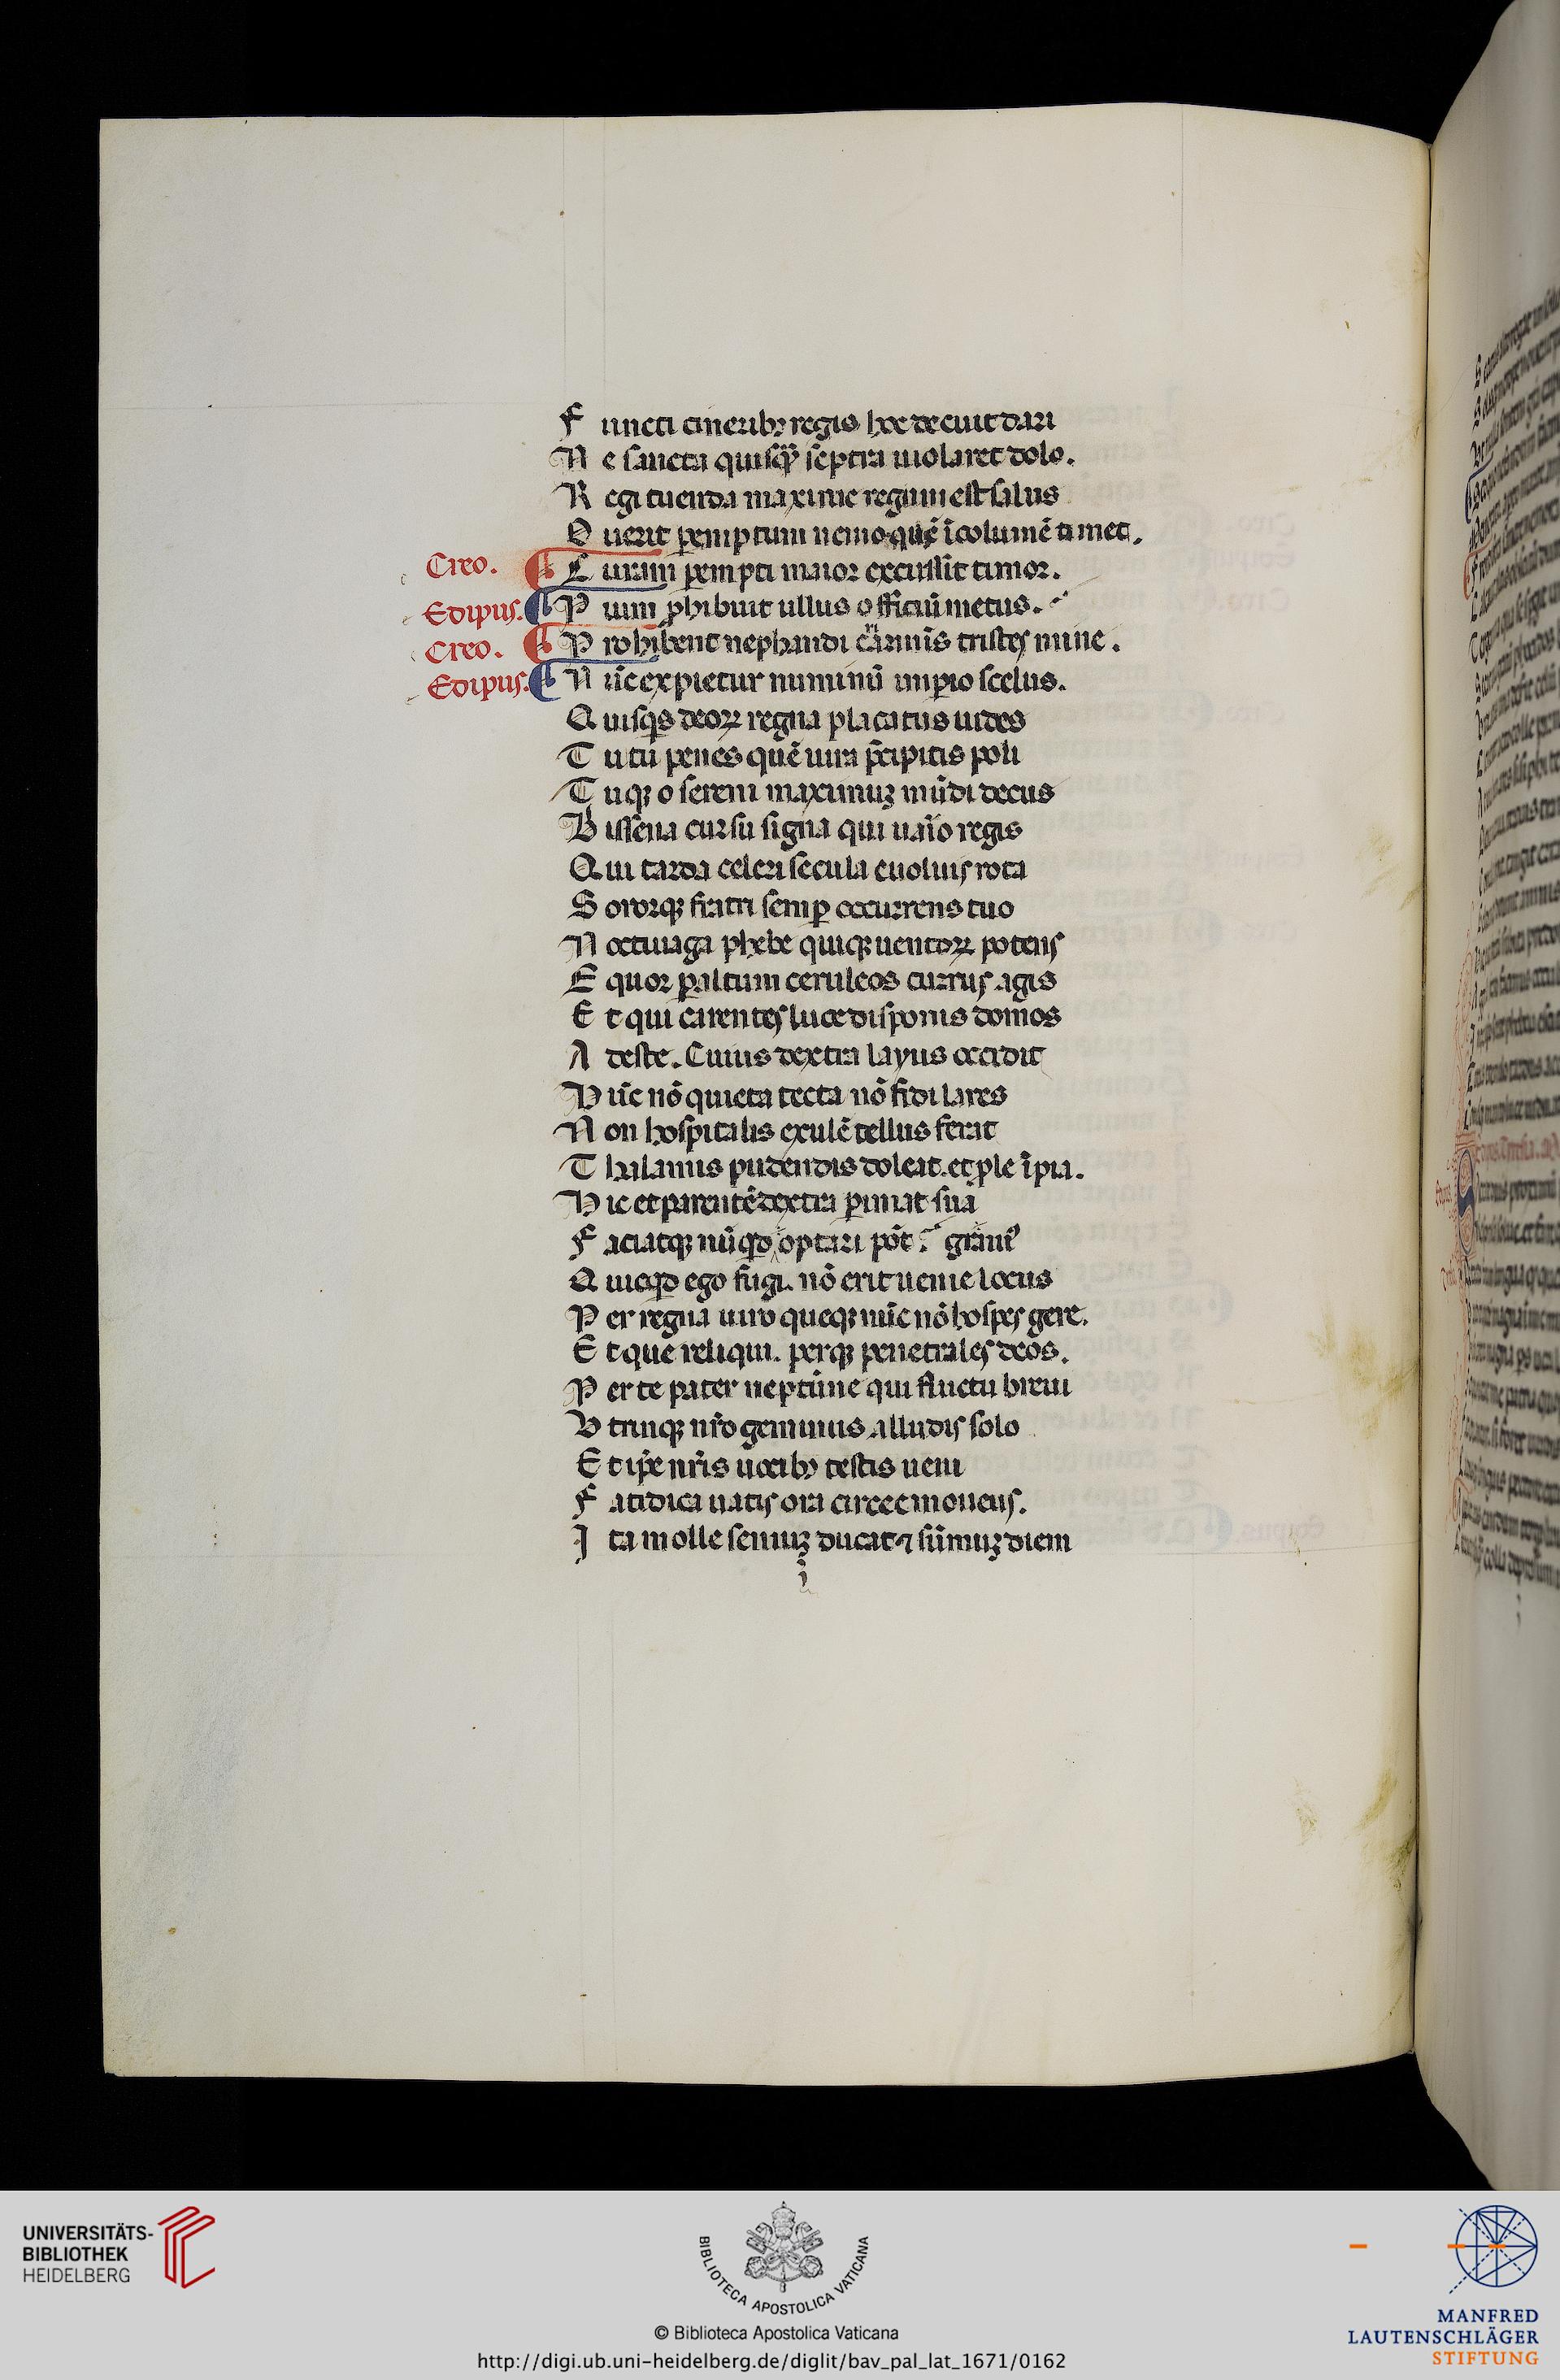 F uncti cineribꝫ regis hoc decuit dari
N e sancta quisqꝫ sceptra uiolaret dolo.
R egi tuenda maxime regum est salus
Q uerit ꝑemptum nemo quē īcolumē timet.
Creo. C uram ꝑempti maior excussit timor.
Edipus. P ium ꝓhibuit ullus officiū metus.
Creo. P rohibent nephandi carminis tristes mine.
Edipus. N ūc expietur numinū imꝑio scelus.
Q uisqs deoꝝ regna placatus uides
T u tu penes quē iura p̄cipitis poli
T uqꝫ o sereni maximuꝫ mūdi decus
B issena cursu signa qui uaīo regis
Q ui tarda celeri secula euoluis rota
S ororqꝫ fratri semꝑ occurrens tuo
N octiuaga phebe quiqꝫ uentoꝝ potens
E quor ꝑ altum ceruleos currus agis
E t qui carentes luce disponis domos
A deste. Cuius dextra layus occidit
H ūc nō quieta tecta nō fidi lares
N on hospitalis exulē tellus ferat
T halamis pudendis doleat. et ꝓle īpia.
H ic et parentē dextra ꝑimat sua
F aciatqꝫ nūqd optari pōt grauiꝰ
Q uicqd ego fugi. nō erit uenie locus
P er regna iuro queqꝫ nūc nō hospes gere.
E t que reliqui. perqꝫ penetrales deos.
P er te pater neptūne qui fluctu breui
V trinqꝫ nr̄o geminus alludis solo
E t ip̄e nr̄is uocibꝫ testis ueni
F atidica uatis ora circee mouens.
I ta molle seniuꝫ ducat ⁊ sūmuꝫ diem
UNIVERSITÄTS-
BIBLIOTHEK
HEIDELBERG
BIBLIOTECA APOSTOLICA VATICANA
© Biblioteca Apostolica Vaticana
http://digi.ub.uni-heidelberg.de/diglit/bav_pal_lat_1671/0162
MANFRED
LAUTENSCHLÄGER
STIFTUNG